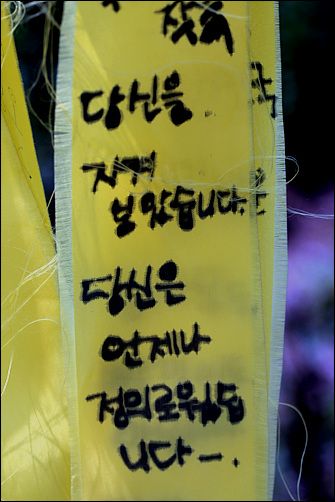 당신을
지켜
보았습니다.
당신은
언제나
정의로웠습
니다-.